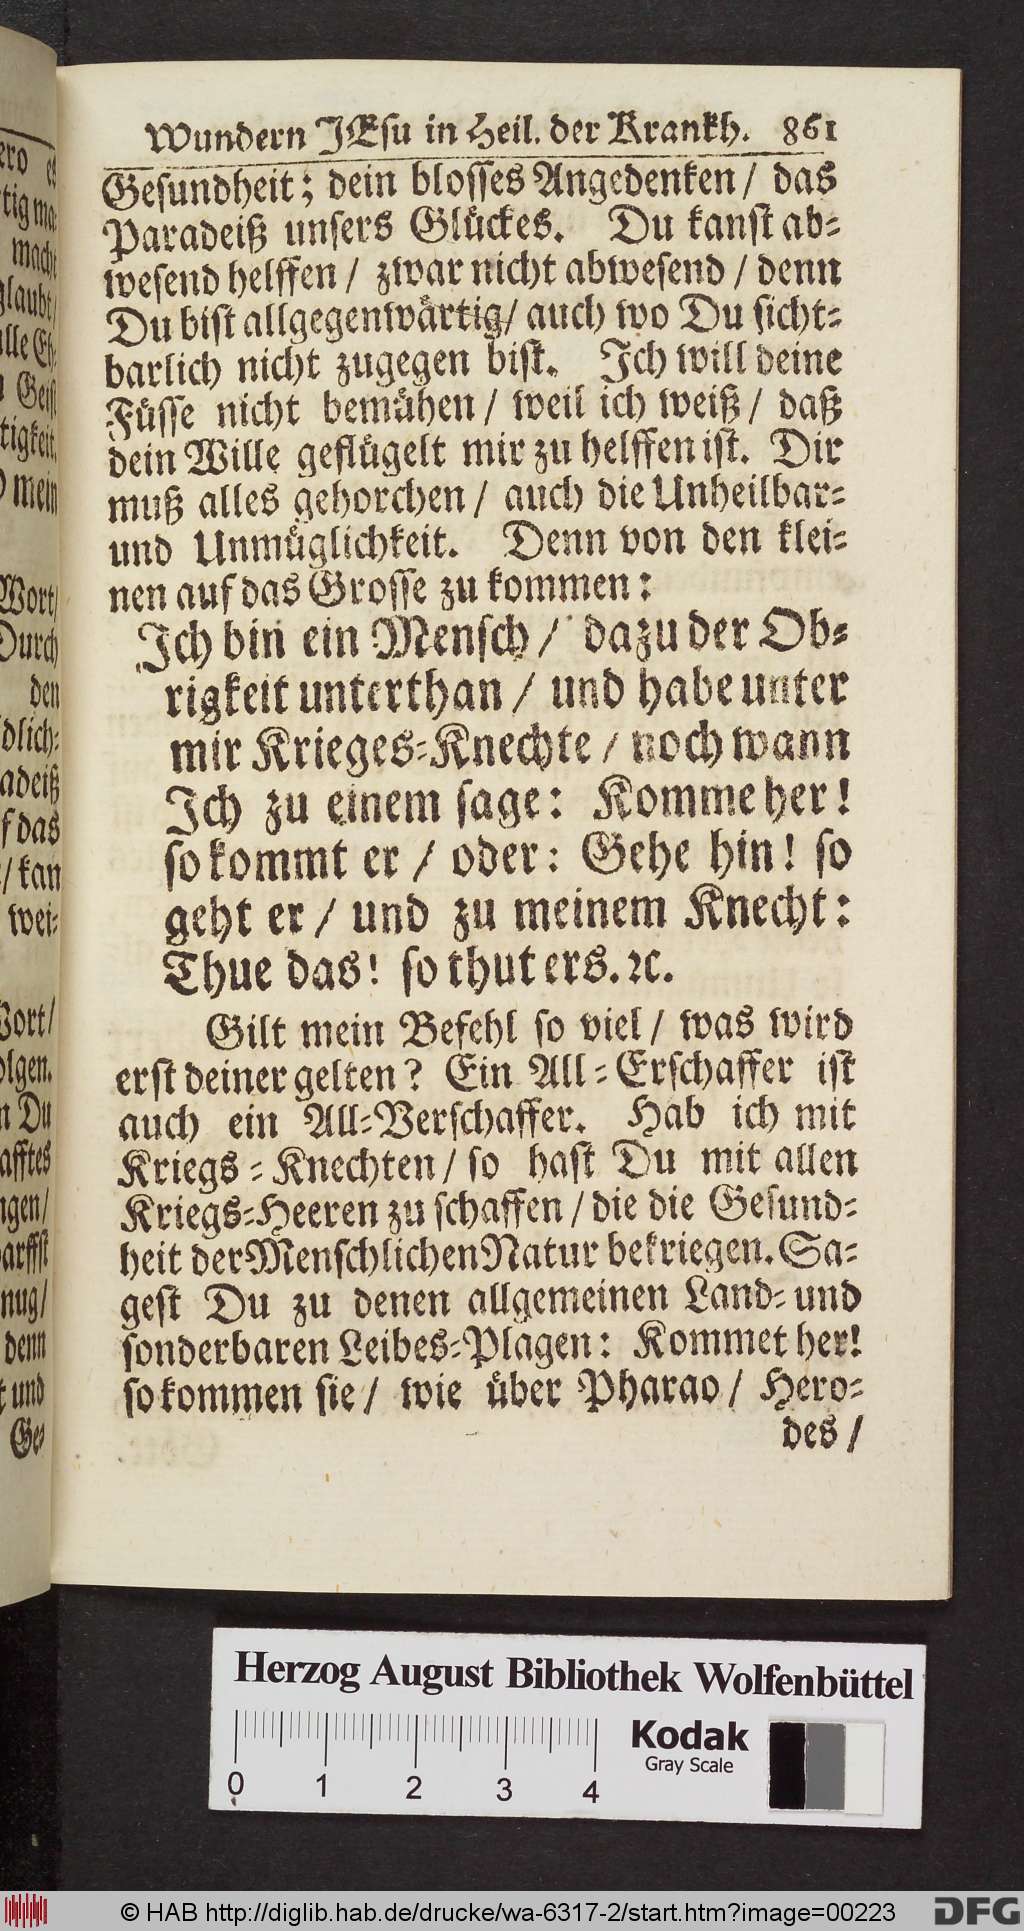 Wundern JEsu in Heil. der Krankh. 861
Gesundheit; dein blosses Angedenken / das
Paradeiß unsers Glückes. Du kanst ab-
wesend helffen / zwar nicht abwesend / denn
Du bist allgegenwärtig / auch wo Du sicht-
barlich nicht zugegen bist. Ich will deine
Füsse nicht bemühen / weil ich weiß / daß
dein Wille geflügelt mir zu helffen ist. Dir
muß alles gehorchen / auch die Unheilbar-
und Unmüglichkeit. Denn von den klei-
nen auf das Grosse zu kommen:
Ich bin ein Mensch / dazu der Ob-
rigkeit unterthan / und habe unter
mir Krieges-Knechte / noch wann
Ich zu einem sage: Komme her!
so kommt er / oder: Gehe hin! so
geht er / und zu meinem Knecht:
Thue das! so thut ers. ꝛc.
Gilt mein Befehl so viel / was wird
erst deiner gelten? Ein All-Erschaffer ist
auch ein All-Verschaffer. Hab ich mit
Kriegs-Knechten / so hast Du mit allen
Kriegs-Heeren zu schaffen / die die Gesund-
heit der Menschlichen Natur bekriegen. Sa-
gest Du zu denen allgemeinen Land- und
sonderbaren Leibes-Plagen: Kommet her!
so kommen sie / wie über Pharao / Hero-
des /
Wort/
Durch
den
dlich-
adeiß
f das
/ kan
wei-
Wort/
olgen.
n Du
afftes
ngen/
arffst
nug/
denn
t und
Ge-
Herzog August Bibliothek Wolfenbüttel
0 1 2 3 4
Kodak
Gray Scale
© HAB http://diglib.hab.de/drucke/wa-6317-2/start.htm?image=00223
DFG